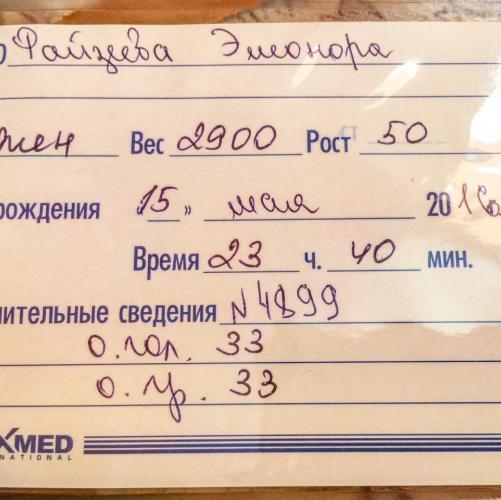 Ф Файзуева Элеонора
жен Вес 2900 Рост 50
рождения 15 » мая 2016
Время 23 ч. 40 мин.
нительные сведения N4899
о. гол. 33
о. гр. 33
XMED
NATIONAL